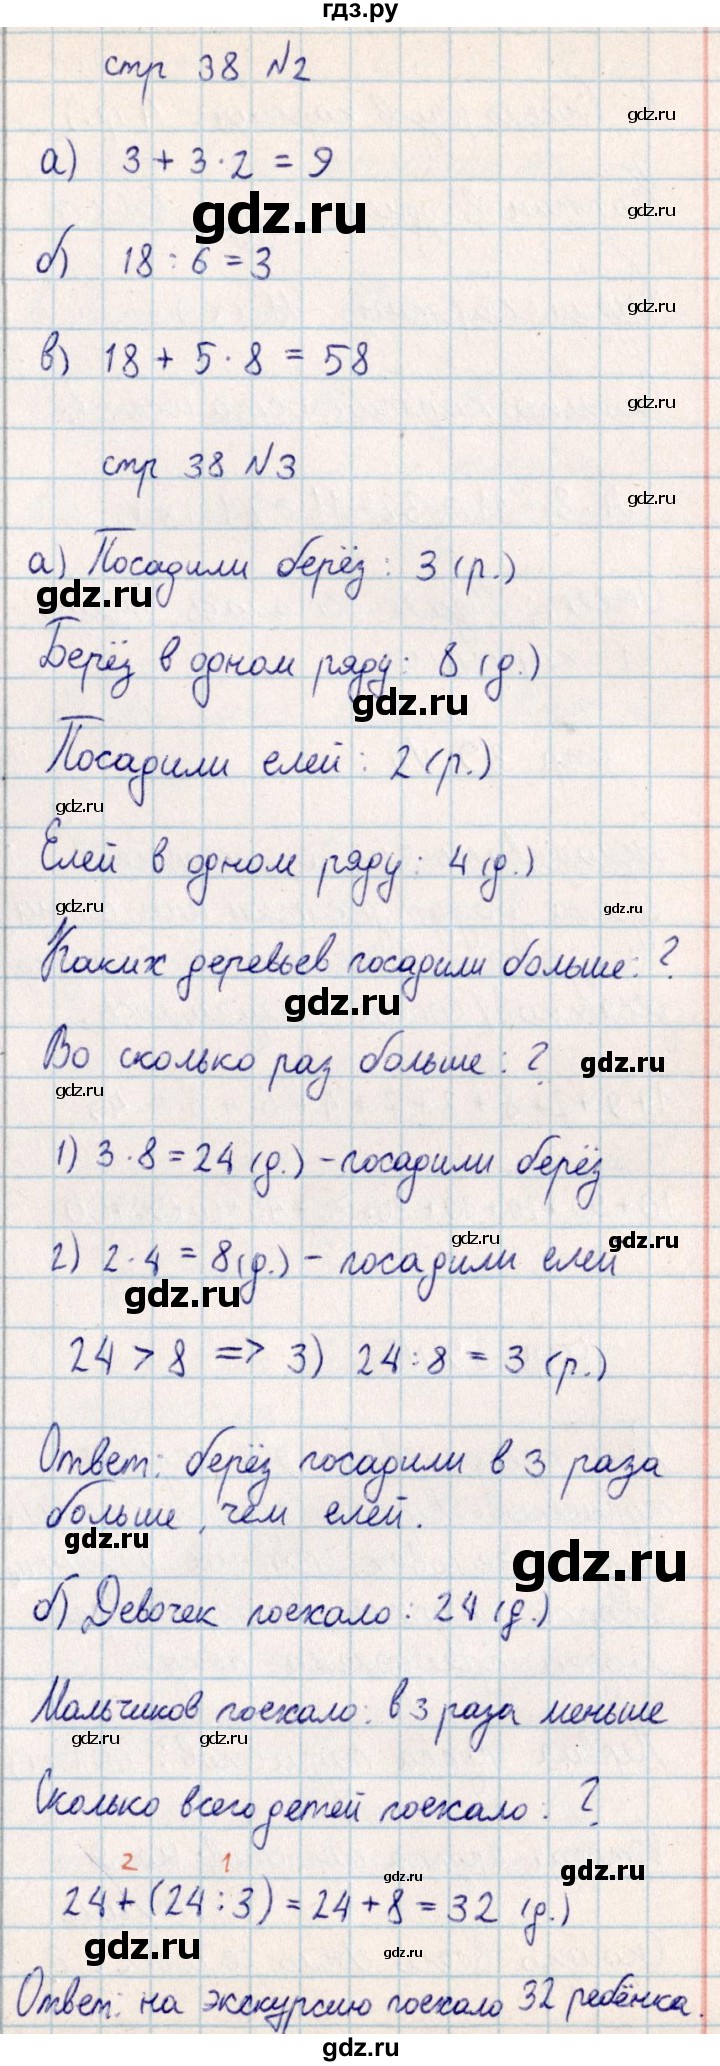 гдз.ру
стр 38 №2
gdz.ru
а) 3 + 3 · 2 = 9
gdz.ru
gdz.ru
б) 18 : 6 = 3
gdz.ru
в) 18 + 5 · 8 = 58
gdz.ru
стр 38 №3
gdz.ru
а) Посадили берёз: 3 (р.)
gdz.ru
Берёз в одном ряду: 8 (д.)
gdz.ru
Посадили елей: 2 (р.)
gdz.ru
Елей в одном ряду: 4 (д.)
gdz.ru
gdz.ru
Каких деревьев посадили больше: ?
gdz.ru
Во сколько раз больше: ?
gdz.ru
gdz.ru
1) 3 · 8 = 24 (д.) – посадили берёз
gdz.ru
gdz.ru
2) 2 · 4 = 8 (д.) – посадили елей
gdz.ru
24 > 8 => 3) 24 : 8 = 3 (р.)
Ответ: берёз посадили в 3 раза
больше, чем елей.
gdz.ru
gdz.ru
б) Девочек поехало: 24 (д.)
Мальчиков поехало: в 3 раза меньше
gdz.ru
gdz.ru
Сколько всего детей поехало: ?
2 1
gdz.ru
gdz.ru
24 + (24 : 3) = 24 + 8 = 32 (д.)
gdz.ru
gdz.ru
Ответ: на экскурсию поехало 32 ребёнка.
gdz.ru